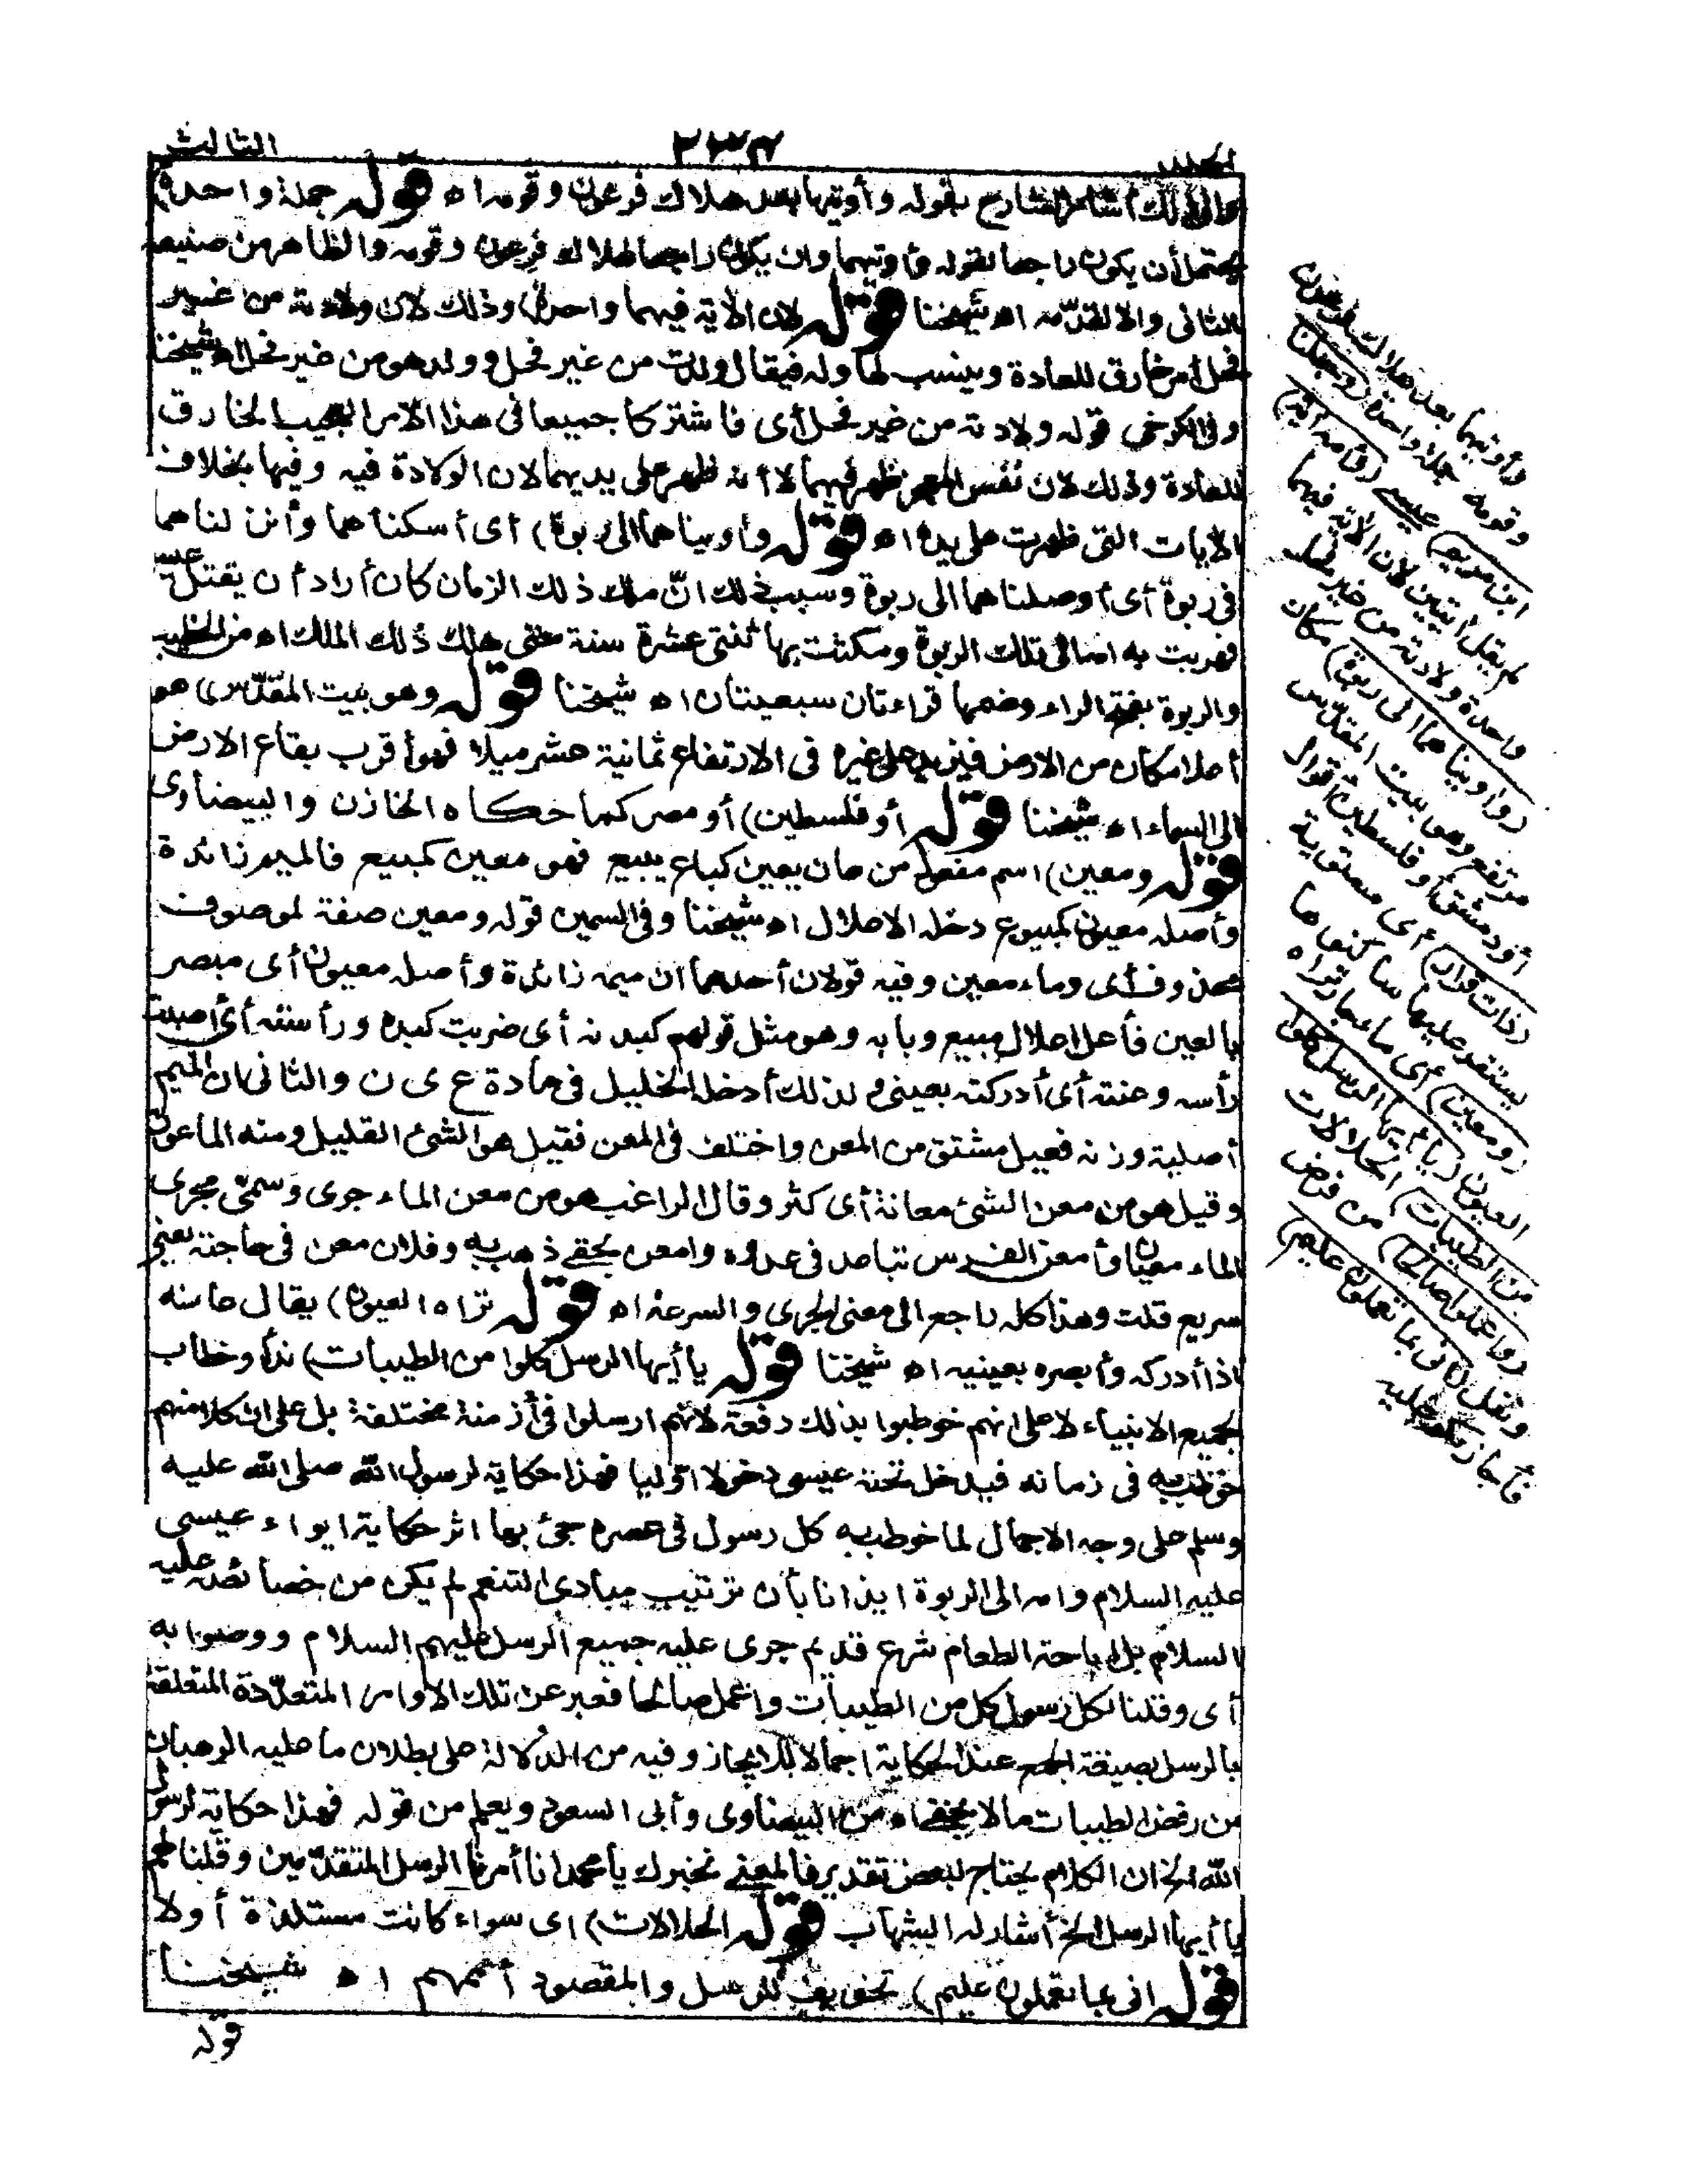 الثالث
٢٣٤
المجلد
والى ذلك أشار الشارح بقوله وأوتيها بعد هلاك فرعون وقومه اه قوله جملة واحدة)
يحتمل أن يكون راجعا لقوله وأوتيها وان يكون راجعا لهلاك فرعون وقومه والظاهر من صنيعه
الثانى والا لقدّمه اه شيخنا قوله لان الآية فيهما واحدة) وذلك لان ولادته من غير
فحل أمر خارق للعادة وينسب لها وله فيقال ولدت من غير فحل وولد هو من غير فحل اه شيخنا
وفى الكرخى قوله ولادته من غير فحل أى فاشتركا جميعا فى هذا الأمر العجيب الخارق
للعادة وذلك لان نفس المعجز ظهر فيهما لا أنه ظهر على يديهما لان الولادة فيه وفيها بخلاف
الآيات التى ظهرت على يده اه قوله وأويناهما الى ربوة) أى أسكناهما وأنزلناهما
فى ربوة أى أوصلناهما الى ربوة وسبب ذلك انّ ملك ذلك الزمان كان أراد أن يقتل عيسى
فهربت به امه الى تلك الربوة ومكثت بها ثنتى عشرة سنة حتى هلك ذلك الملك اه من الخطيب
والربوة بفتح الراء وضمها قراءتان سبعيتان اه شيخنا قوله وهو بيت المقدّس) هو
أعلا مكان من الارض فيزيد على غيره فى الارتفاع ثمانية عشر ميلا فهو أقرب بقاع الارض
الى السماء اه شيخنا قوله أو فلسطين) أو مصر كما حكاه الخازن والبيضاوى
قوله ومعين) اسم مفعول من عان يعين كباع يبيع فهو معين كمبيع فالميم زائدة
وأصله معيون كمبيوع دخله الاعلال اه شيخنا وفى السمين قوله ومعين صفة لموصوف
محذوف أى وماء معين وفيه قولان أحدهما ان ميمه زائدة وأصله معيون أى مبصر
بالعين فأعل اعلال مبيع وبابه وهو مثل قولهم كبدته أى ضربت كبده ورأسته أى أصبت
رأسه وعنته أى أدركته بعينى ولذلك أدخله الخليل فى مادة ع ى ن والثانى ان الميم
أصلية وزنه فعيل مشتق من المعن واختلف فى المعن فقيل هو الشئ القليل ومنه الماعون
وقيل هو من معن الشئ معانة أى كثر وقال الراغب هو من معن الماء جرى وسمى مجرى
الماء معيان وأمعن الفرس تباعد فى عدوه وامعن بحقے ذهب به وفلان معن فى حاجته يعنى
سريع قلت وهذا كله راجع الى معنى الجرى والسرعة اه قوله تراه العيون) يقال عانه
اذا أدركه وأبصره بعينيه اه شيخنا قوله يا أيها الرسل كلوا من الطيبات) نداء وخطاب
لجميع الانبياء لا على انهم خوطبوا بذلك دفعة لانهم ارسلوا فى أزمنة مختلفة بل على ان كلا منهم
خوطب به فى زمانه فيدخل تحته عيسى دخولا اوّليا فهذا حكاية لرسول الله صلى الله عليه
وسلم على وجه الاجمال لما خوطب به كل رسول فى عصره جئ بها اثر حكاية ايواء عيسى
عليه السلام وامه الى الربوة ايذانا بأن ترتيب مبادى التنعم لم يكن من خصائصه عليه
السلام بل اباحة الطعام شرع قديم جرى عليه جميع الرسل عليهم السلام ووصوا به
أى وقلنا لكل رسول كل من الطيبات واعمل صالحا فعبر عن تلك الاوامر المتعدّدة المتعلقة
بالرسل بصيغة الجمع عند الحكاية اجمالا للايجاز وفيه من الدلالة على بطلان ما عليه الرهبان
من رفض الطيبات ما لا يخفى اه من البيضاوى وأبى السعود ويعلم من قوله فهذا حكاية لرسول
الله الخ ان الكلام يحتاج لبعض تقدير فالمعنے نخبرك يا محمد انا أمرنا الرسل المتقدّمين وقلنا لهم
يا أيها الرسل الخ أشار له الشهاب قوله الحلالات) اى سواء كانت مستلذة أولا
قوله انى بما تعملون عليم) تخويف للرسل والمقصود أممهم اه شيخنا
قوله
وأوتيها بعد هلاك فرعون
وقومه جملة واحدة (وجعلنا
ابن مريم) عيسے (وامه آية)
لم يقل آيتين لان الآية فيهما
واحدة ولادته من غير فحل
(وأويناهما الى ربوة) مكان
مرتفع وهو بيت المقدّس
أو دمشق أو فلسطين اقوال
(ذات قرار) اى مستوية
يستقر عليها ساكنوها
(ومعين) اى ماء جار تراه
العيون (يا أيها الرسل كلوا
من الطيبات) الحلالات
(واعملوا صالحا) من فرض
ونفل (انى بما تعملون عليم)
فأجازيكم عليه